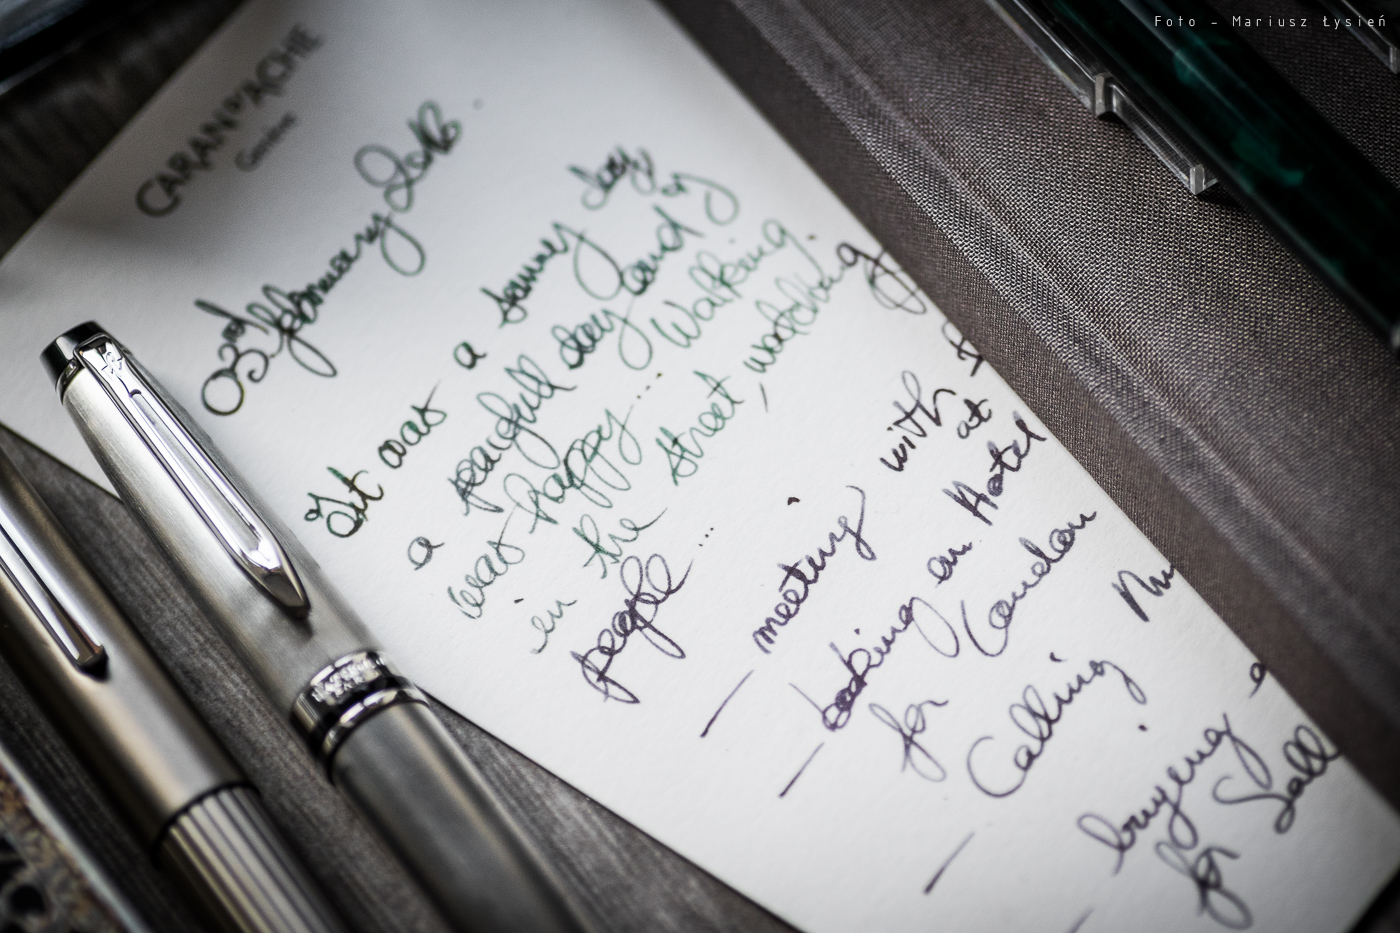 Foto - Mariusz Łysień
CARAN D'ACHE
Genève
03rd february 2018.
It was a sunney day
a peacfull day and
was happy... Walking.
in the street, watching
people...
- meeting with
at
- booking an Hotel
for London
- Calling
- buyeng a
for Sall